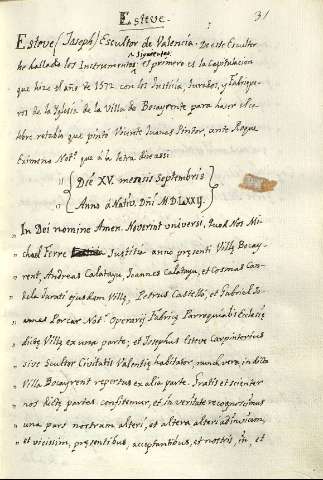 Esteve. 31
Esteve (Joseph) Escultor de Valencia. De este Escultor
he hallado los Instrumentos siguientes: el primero es la Capitulacion
que hizo el año de 1572 con los Justicia, Jurados, y Fabrique-
ros de la Iglesia de la Villa de Bocayrente para hacer el ce-
lebre retablo que pintó Vicente Juanes Pintor, ante Roque
Eximeno Notº que à la letra dice assi
" Die XV. mensis Septembris
" Anno à Nativ. Dñi MDLXXIJ.
" In Dei nomine Amen. Noverint universi, Quod Nos Mi-
" chael Ferre Justitia anno presenti Villę Bocay-
" rent, Andreas Calatayu, Joannes Calatayu, et Cosmas Can-
" dela Jurati ejusdam Villę, Petrus Castelló, et Gabriel Jo-
" annes Porcar Notˢ Operarij Fabrię Parroquialis Eclesię
" dictę Villę ex una parte, et Josephus Esteve Carpinterius
" sive Scultor Civitatis Valentię habitator, nunc vero in dicta
" Villa Bocayrent repertus ex alia parte. Gratis et scienter
" nos dictę partes confitemur, et in veritate recognoscimus
" una pars nostram alteri, et altera alteri ad invicem,
" et vicissim, pręsentibus, acceptantibus, et nostris, in, et